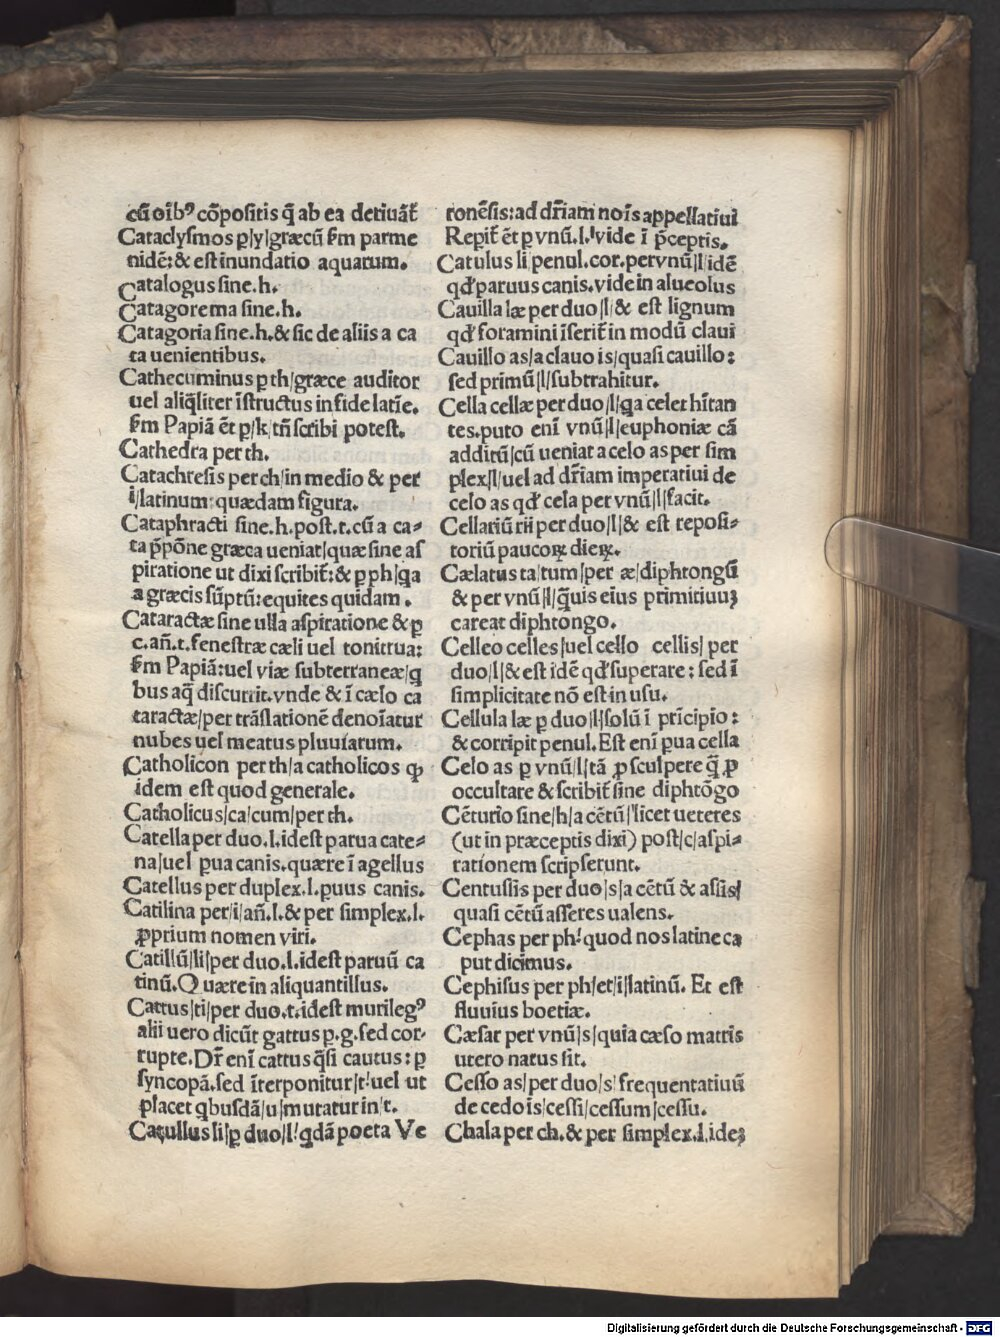 cū oīb⁹ cōpositis q̄ ab ea deriuāt̄
Cataclysmos p̱/y/græcū s̄m parme
nidē: & est inundatio aquarum.
Catalogus sine.h.
Catagorema sine.h.
Catagoria sine.h.& sic de aliis a ca
ta uenientibus.
Cathecuminus p̱ th/græce auditor
uel aliq̄liter īstructus in fide latīe.
s̄m Papiā ēt p̱/k/tn̄ scribi potest.
Cathedra per th.
Catachresis per ch/in medio & per
i/latinum: quædam figura.
Cataphracti sine.h.post.t.cū a ca⸗
ta p̄pōne græca ueniat/quæ sine as
piratione ut dixi scribit̄: & p̱ ph/q̱a
a græcis sūptū: equites quidam.
Cataractæ sine ulla aspiratione & p̱
c.an̄.t.fenestræ cæli uel tonitrua:
s̄m Papiā: uel viæ subterraneæ/q̱
bus aq̄ discurrit.vnde & ī cælo ca
taractæ/per trāslationē denoīatur
nubes uel meatus pluuiarum.
Catholicon per th/a catholicos ꝙ
idem est quod generale.
Catholicus/ca/cum/per th.
Catella per duo.l.idest parua cate⸗
na/uel p̱ua canis.quære ī agellus
Catellus per duplex.l.p̱uus canis.
Catilina per/i/an̄.l.& per simplex.l.
ꝓprium nomen viri.
Catillū/li/per duo.l.idest paruū ca
tinū. Quære in aliquantillus.
Cattus/ti/per duo.t.idest murileg⁹
alii uero dicūt gattus p̱.g.sed cor⸗
rupte. Dr̄ enī cattus q̄si cautus: p̱
syncopā.sed īterponitur/t/uel ut
placet q̱busdā/u/mutatur in/t.
Catullus li/p̱ duo/l/q̱dā poeta Ve
ronēsis: ad dr̄iam noīs appellatiui
Repit̄ ēt p̱ vnū.l.vide ī p̄ceptis.
Catulus li penul.cor.per vnū/l/idē
qd̄ paruus canis.vide in alueolus
Cauilla læ per duo/l/& est lignum
qd̄ foramini īserit̄ in modū claui
Cauillo as/a clauo is/quasi cauillo:
sed primū/l/subtrahitur.
Cella cellæ per duo/l/q̱a celet hītan
tes.puto enī vnū/l/euphoniæ cā
additū/cū ueniat a celo as per sim
plex/l/uel ad dr̄iam imperatiui de
celo as qd̄ cela per vnū/l/facit.
Cellariū rii per duo/l/& est reposi⸗
toriū paucoꝝ dieꝝ.
Cælatus ta/tum/per æ/diphtongū
& per vnū/l/q̄uis eius primitiuuꝫ
careat diphtongo.
Celleo celles/uel cello cellis/per
duo/l/& est idē qd̄ superare: sed ī
simplicitate nō est in usu.
Cellula læ p̱ duo/l/solū ī prīcipio:
& corripit penul. Est enī p̱ua cella
Celo as p̱ vnū/l/tā ꝓ sculpere q̄ ꝓ
occultare & scribit̄ sine diphtōgo
Cēturio sine/h/a cētū/licet ueteres
(ut in præceptis dixi) post/c/aspi⸗
rationem scripserunt.
Centussis per duo/s/a cētū & assis/
quasi cētū asseres ualens.
Cephas per ph/quod nos latine ca
put dicimus.
Cephisus per ph/et/i/latinū. Et est
fluuius boetiæ.
Cæsar per vnū/s/quia cæso matris
utero natus sit.
Cesso as/per duo/s/frequentatiuū
de cedo is/cessi/cessum/cessu.
Chala per ch.& per simplex.l.ideꝫ
Digitalisierung gefördert durch die Deutsche Forschungsgemeinschaft - DFG